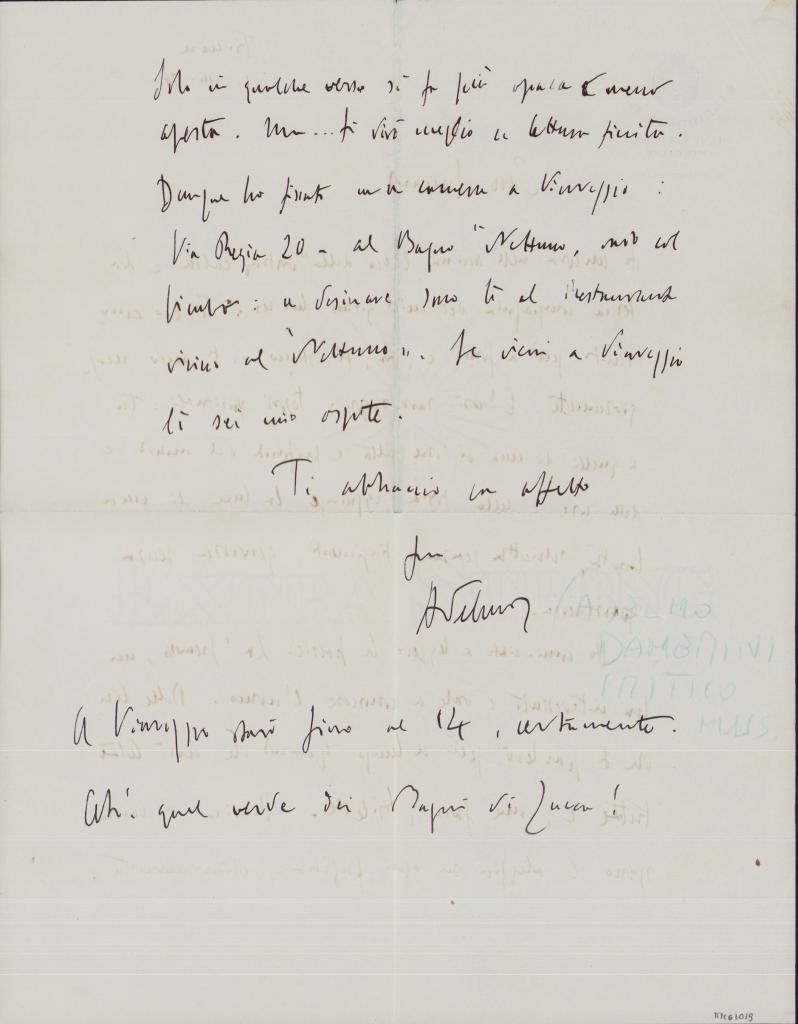 Solo in qualche verso si fa più opaca e meno
aperta. Ma... ti dirò meglio a lettura finita.
Dunque ho fissato una camera a Viareggio:
Via Regia 20 - al Bagno "Nettuno, sarò col
: a desinare sono lì al Restaurant
vicino al "Nettuno". Se vieni a Viareggio
lì sei mio ospite.
Ti abbraccio con affetto
tuo
Adelmo
/ADELMO
DAMERINI
CRITICO
MUS.
A Viareggio starò fino al 14, certamente.
Ah! quel verde dei Bagni di Lucca!